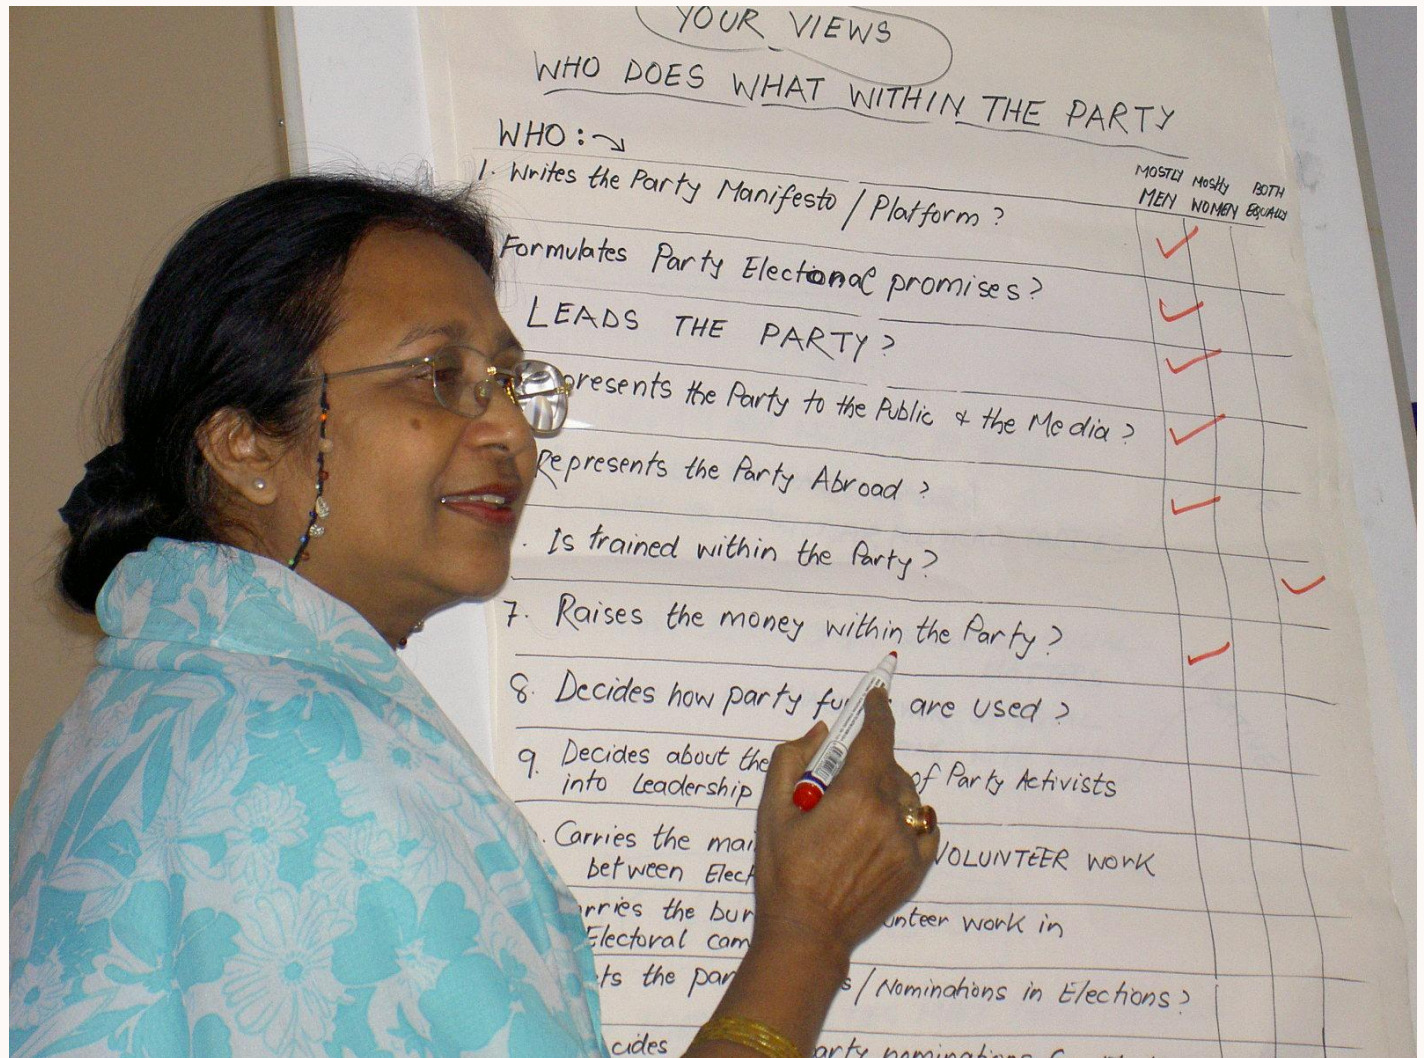 YOUR VIEWS
WHO DOES WHAT WITHIN THE PARTY
WHO:
MOSTLY MEN
Mostly WOMEN
BOTH EQUALLY
1. Writes the Party Manifesto / Platform ?
Formulates Party Electional promises?
LEADS THE PARTY?
presents the Party to the Public & the Media?
Represents the Party Abroad ?
. Is trained within the Party?
7. Raises the money within the Party?
8. Decides how party are used ?
9. Decides about the of Party Activists
into Leadership
. Carries the VOLUNTEER work
between
the work in
Electoral
the / Nominations in Elections?
party nominations